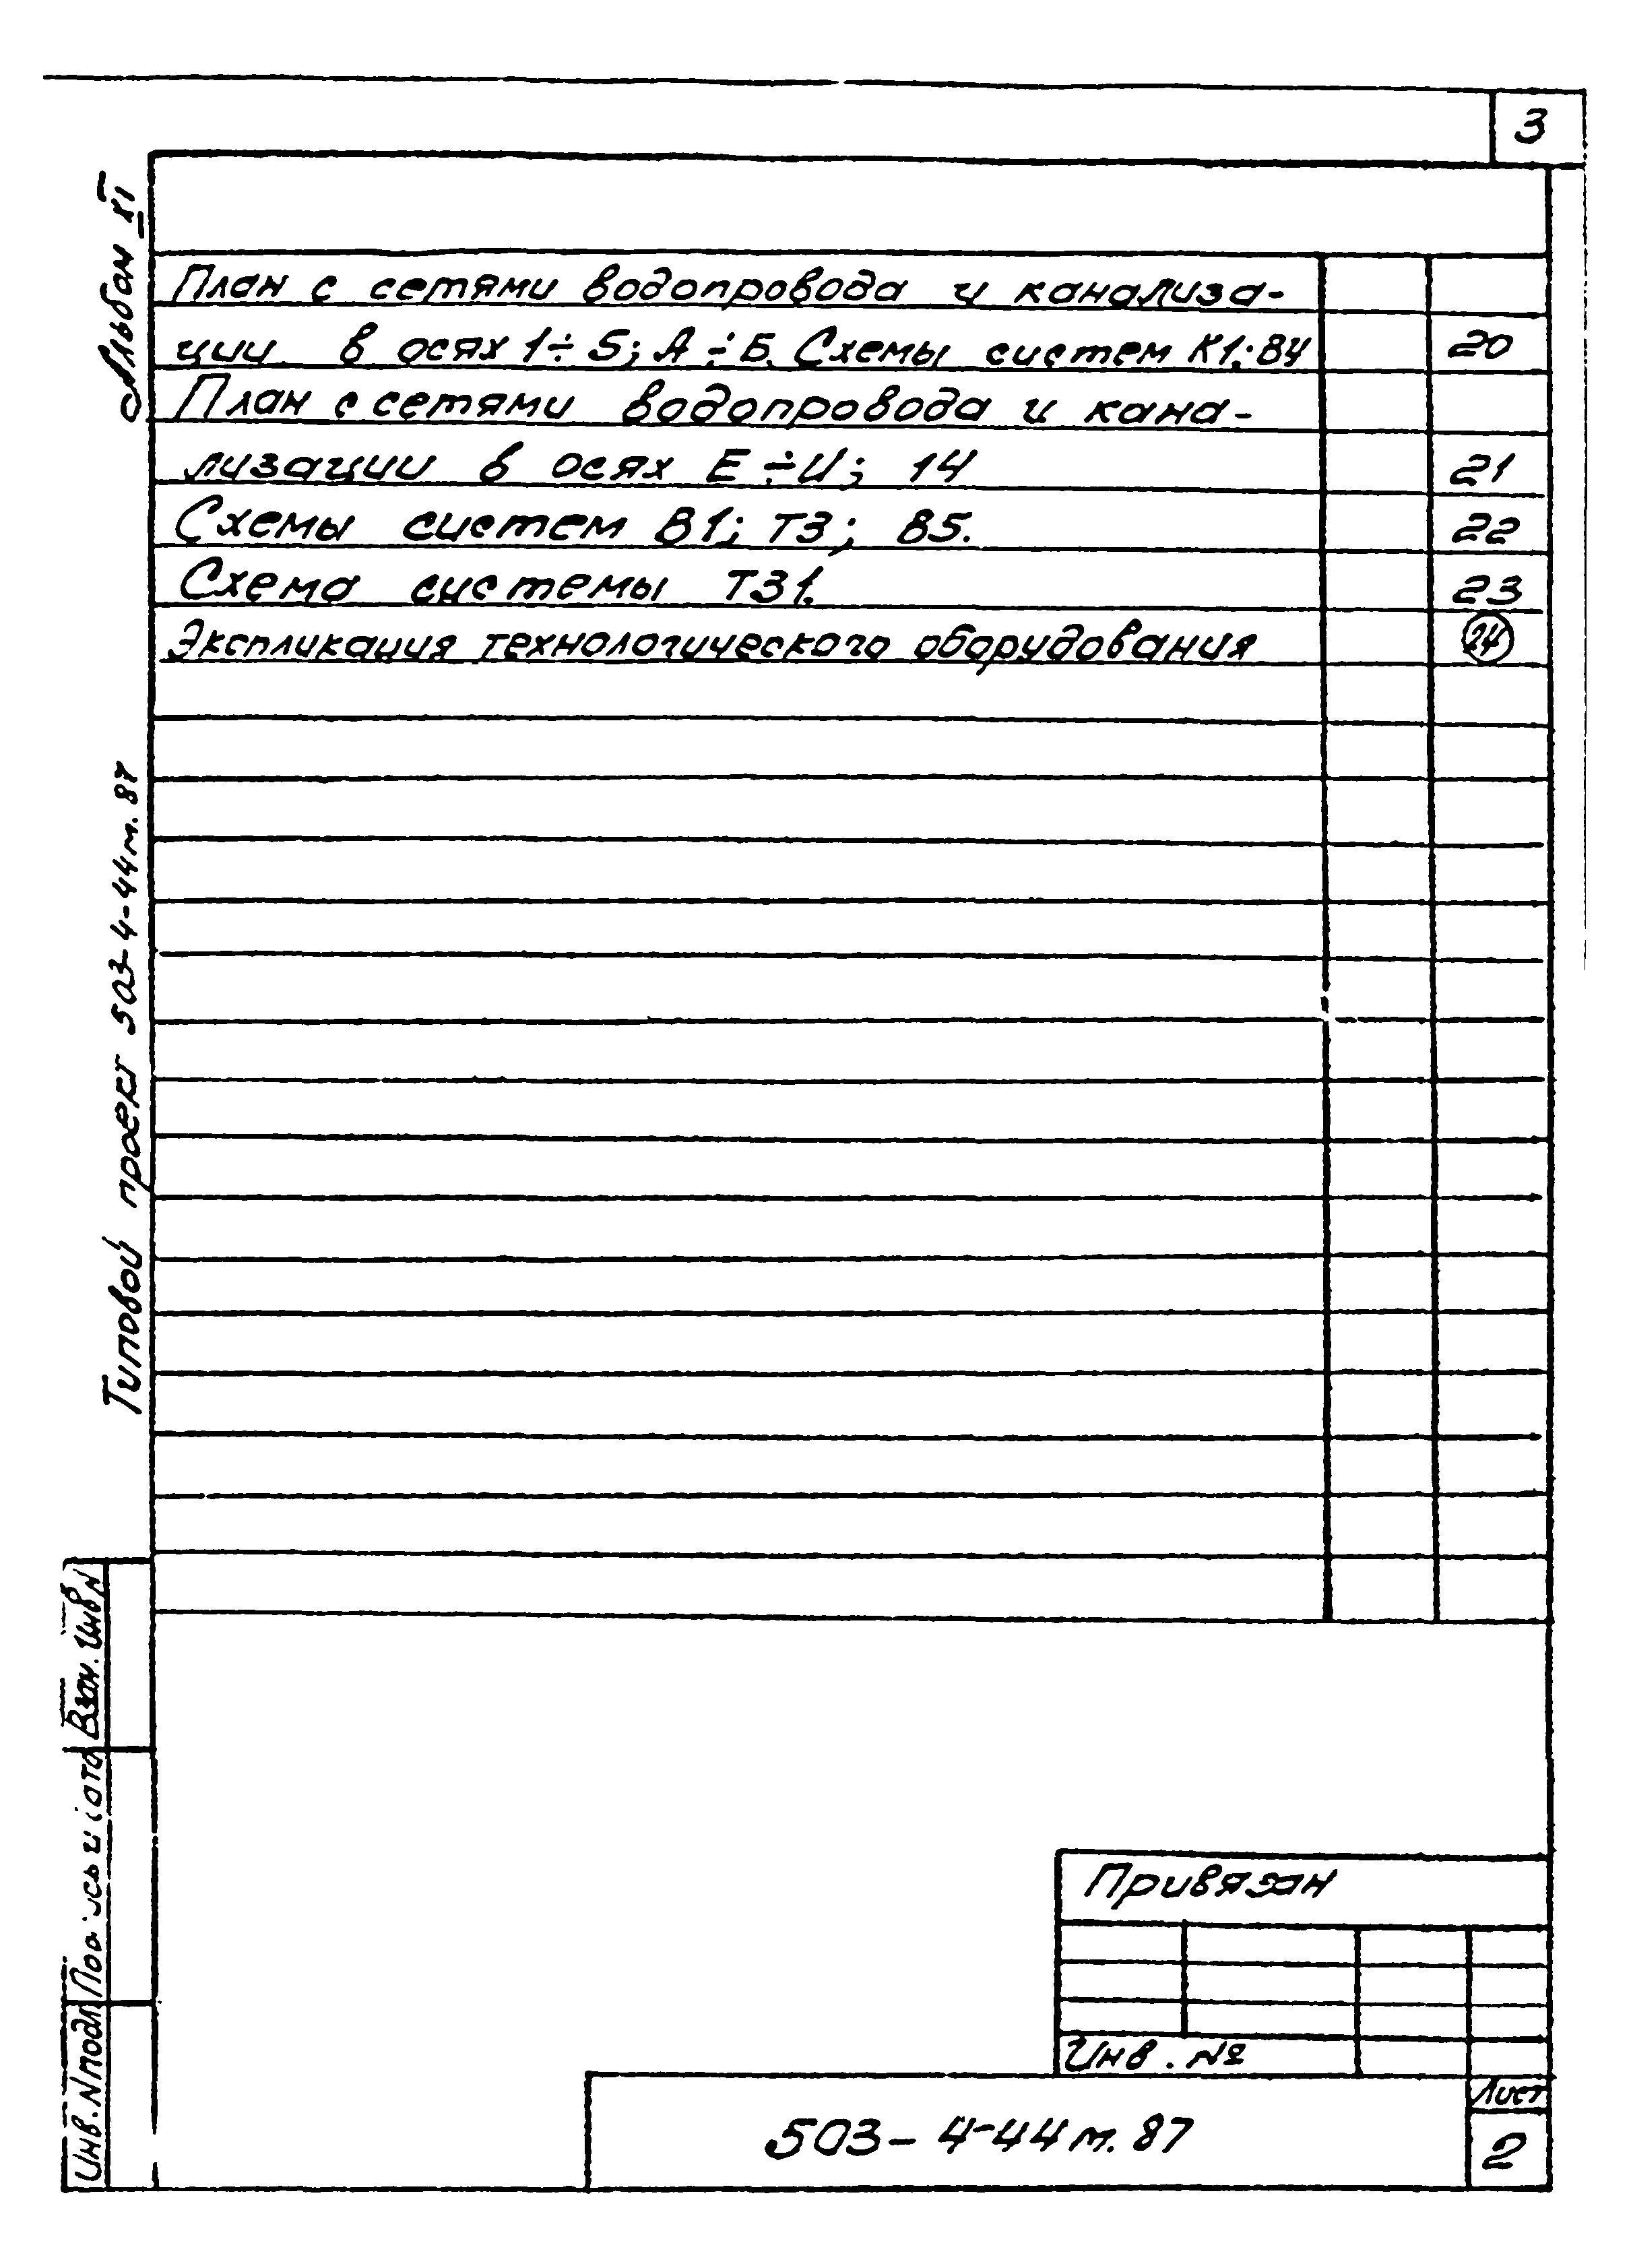 3
Альбом XI
План с сетями водопровода и канализа-
ции в осях 1÷5; А÷Б. Схемы систем К1; В4 20
План с сетями водопровода и кана-
лизации в осях Е÷И; 14 21
Схемы систем В1; Т3; В5. 22
Схема системы Т31. 23
Экспликация технологического оборудования 24
Типовой проект 503-4-44м.87
Взам. Инв N
Инв. N подл
Привязан
Инв. №
503-4-44м.87
Лист
2